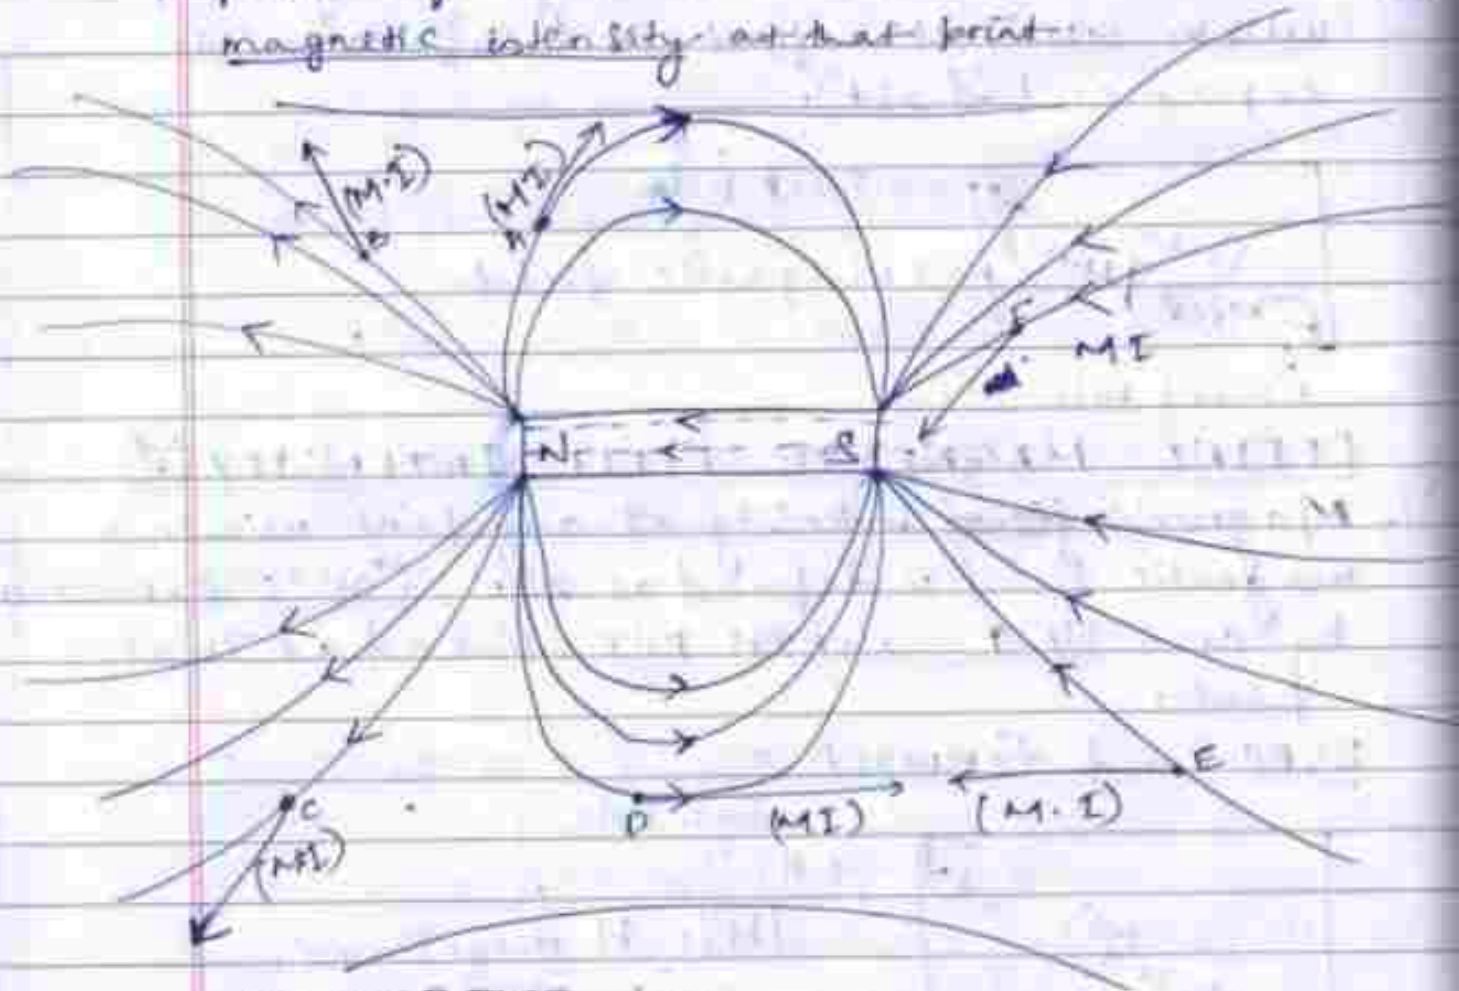 magnetic intensity at that point
(M.I) (M.I)
B A
F
MI
N S
M
E
C D (MI) (M.I)
(MI)